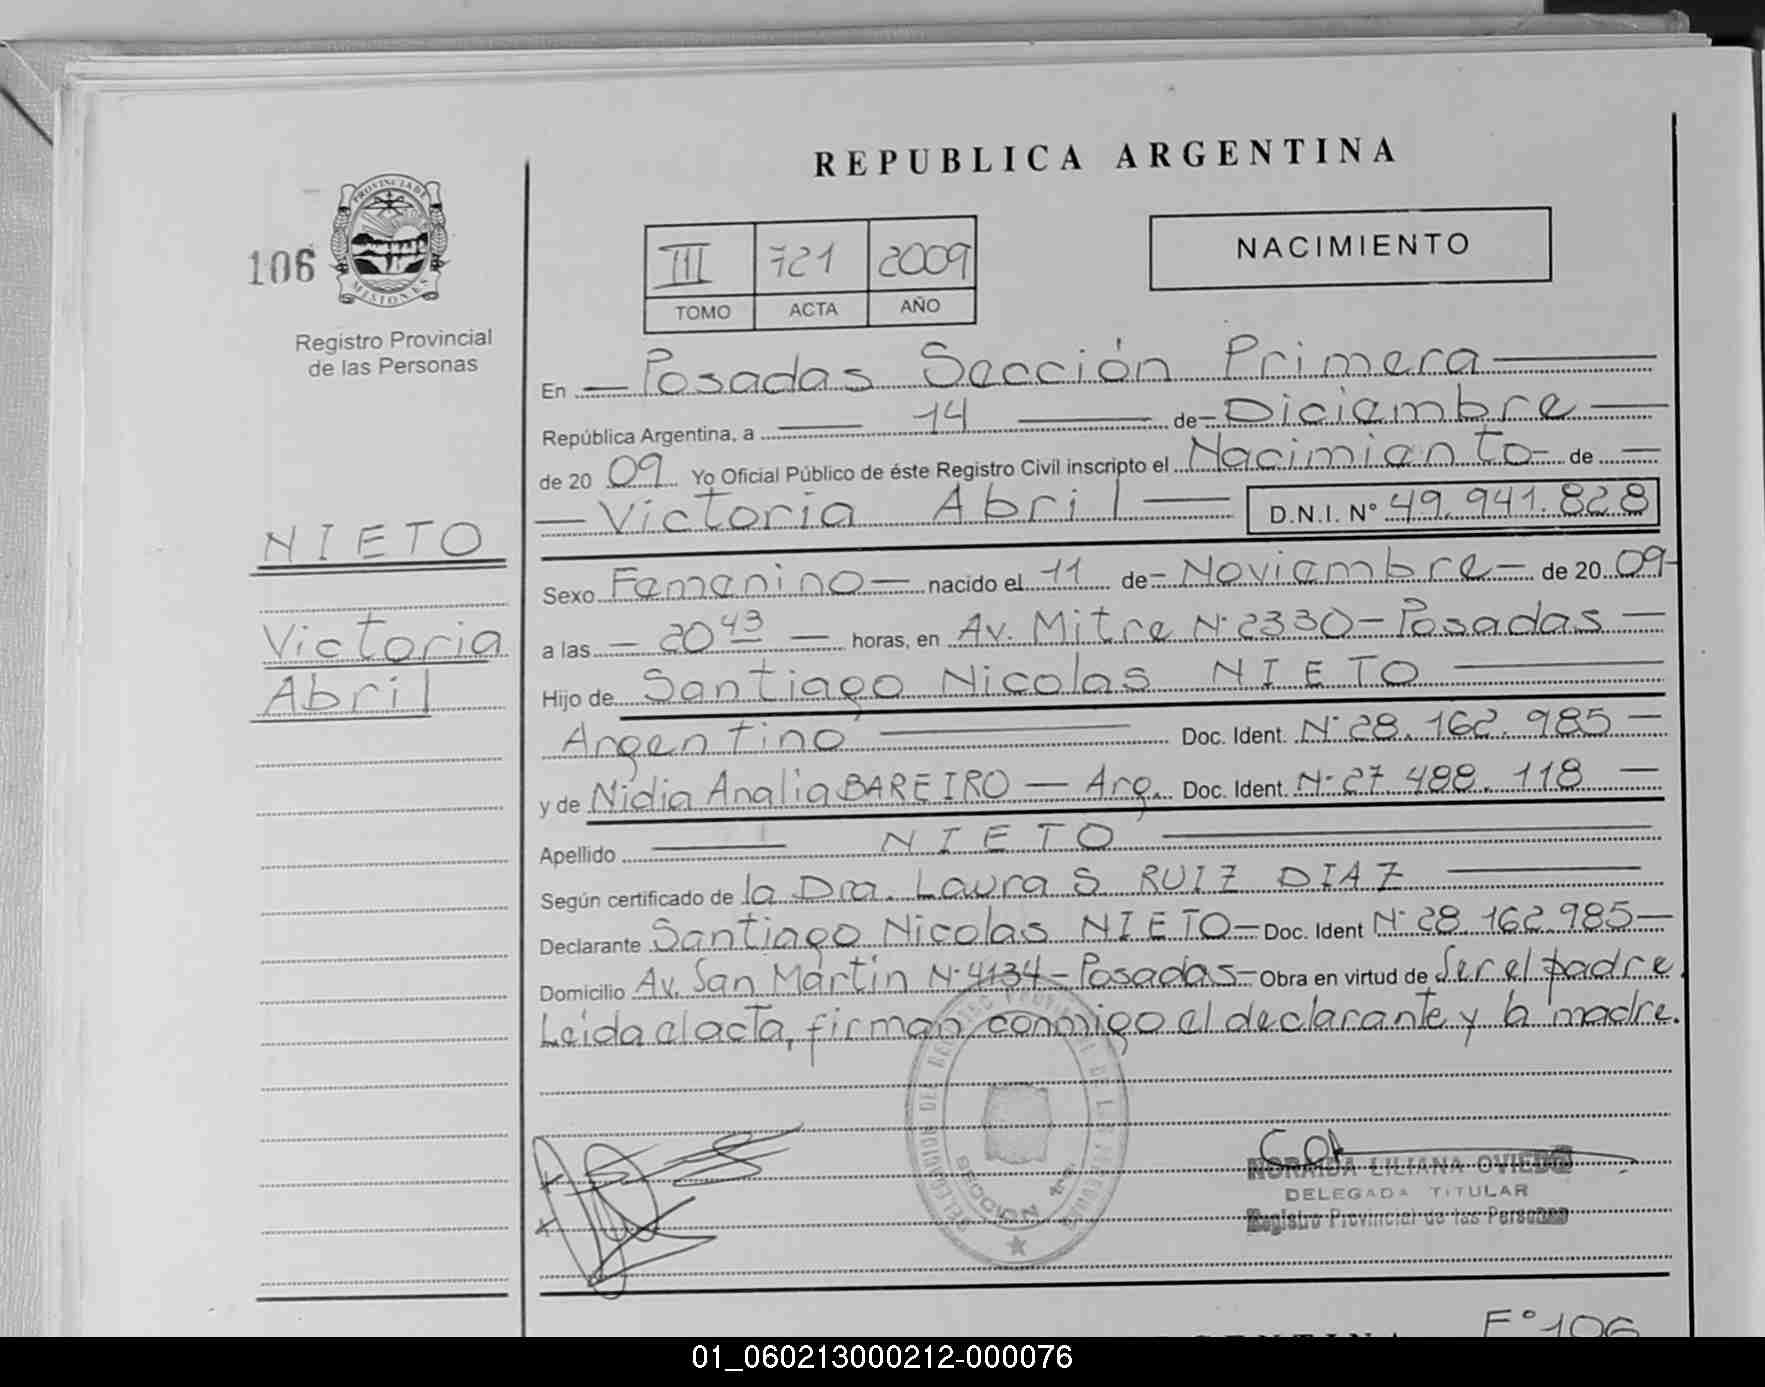 REPUBLICA ARGENTINA
PROVINCIA DE
MISIONES
106
Registro Provincial
de las Personas
NIETO
Victoria
Abril
III 721 2009
TOMO ACTA AÑO
NACIMIENTO
En Posadas Sección Primera
República Argentina, a 14 de Diciembre
de 20 09 Yo Oficial Público de éste Registro Civil inscripto el Nacimiento de
Victoria Abril D.N.I. N° 49.941.828
Sexo Femenino nacido el 11 de Noviembre de 20 09
a las 20 43 horas, en Av. Mitre N° 2330 - Posadas
Hijo de Santiago Nicolas NIETO
Argentino Doc. Ident. N° 28.162.985
y de Nidia Analia BAREIRO - Arg. Doc. Ident. N° 27.488.118
Apellido NIETO
Según certificado de la Dra. Laura S RUIZ DIAZ
Declarante Santiago Nicolas NIETO - Doc. Ident N° 28.162.985
Domicilio Av. San Martin N° 4134 - Posadas - Obra en virtud de Ser el padre.
Leída el acta, firman conmigo el declarante y la madre.
SECCION 1ra
NORAIDA LILIANA OVIEDO
DELEGADA TITULAR
Registro Provincial de las Personas
F° 106
01_060213000212-000076